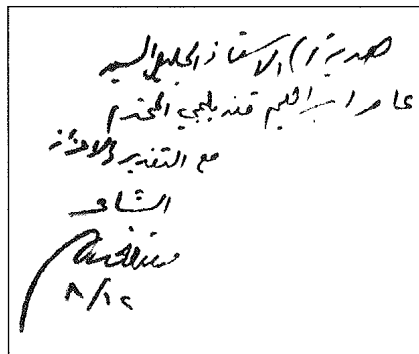 هدية الى الاستاذ الجليل السيد
عامر ابراهيم قنديلجي المحترم
مع التقدير والاعتزاز
الشاعر
٨/١٢